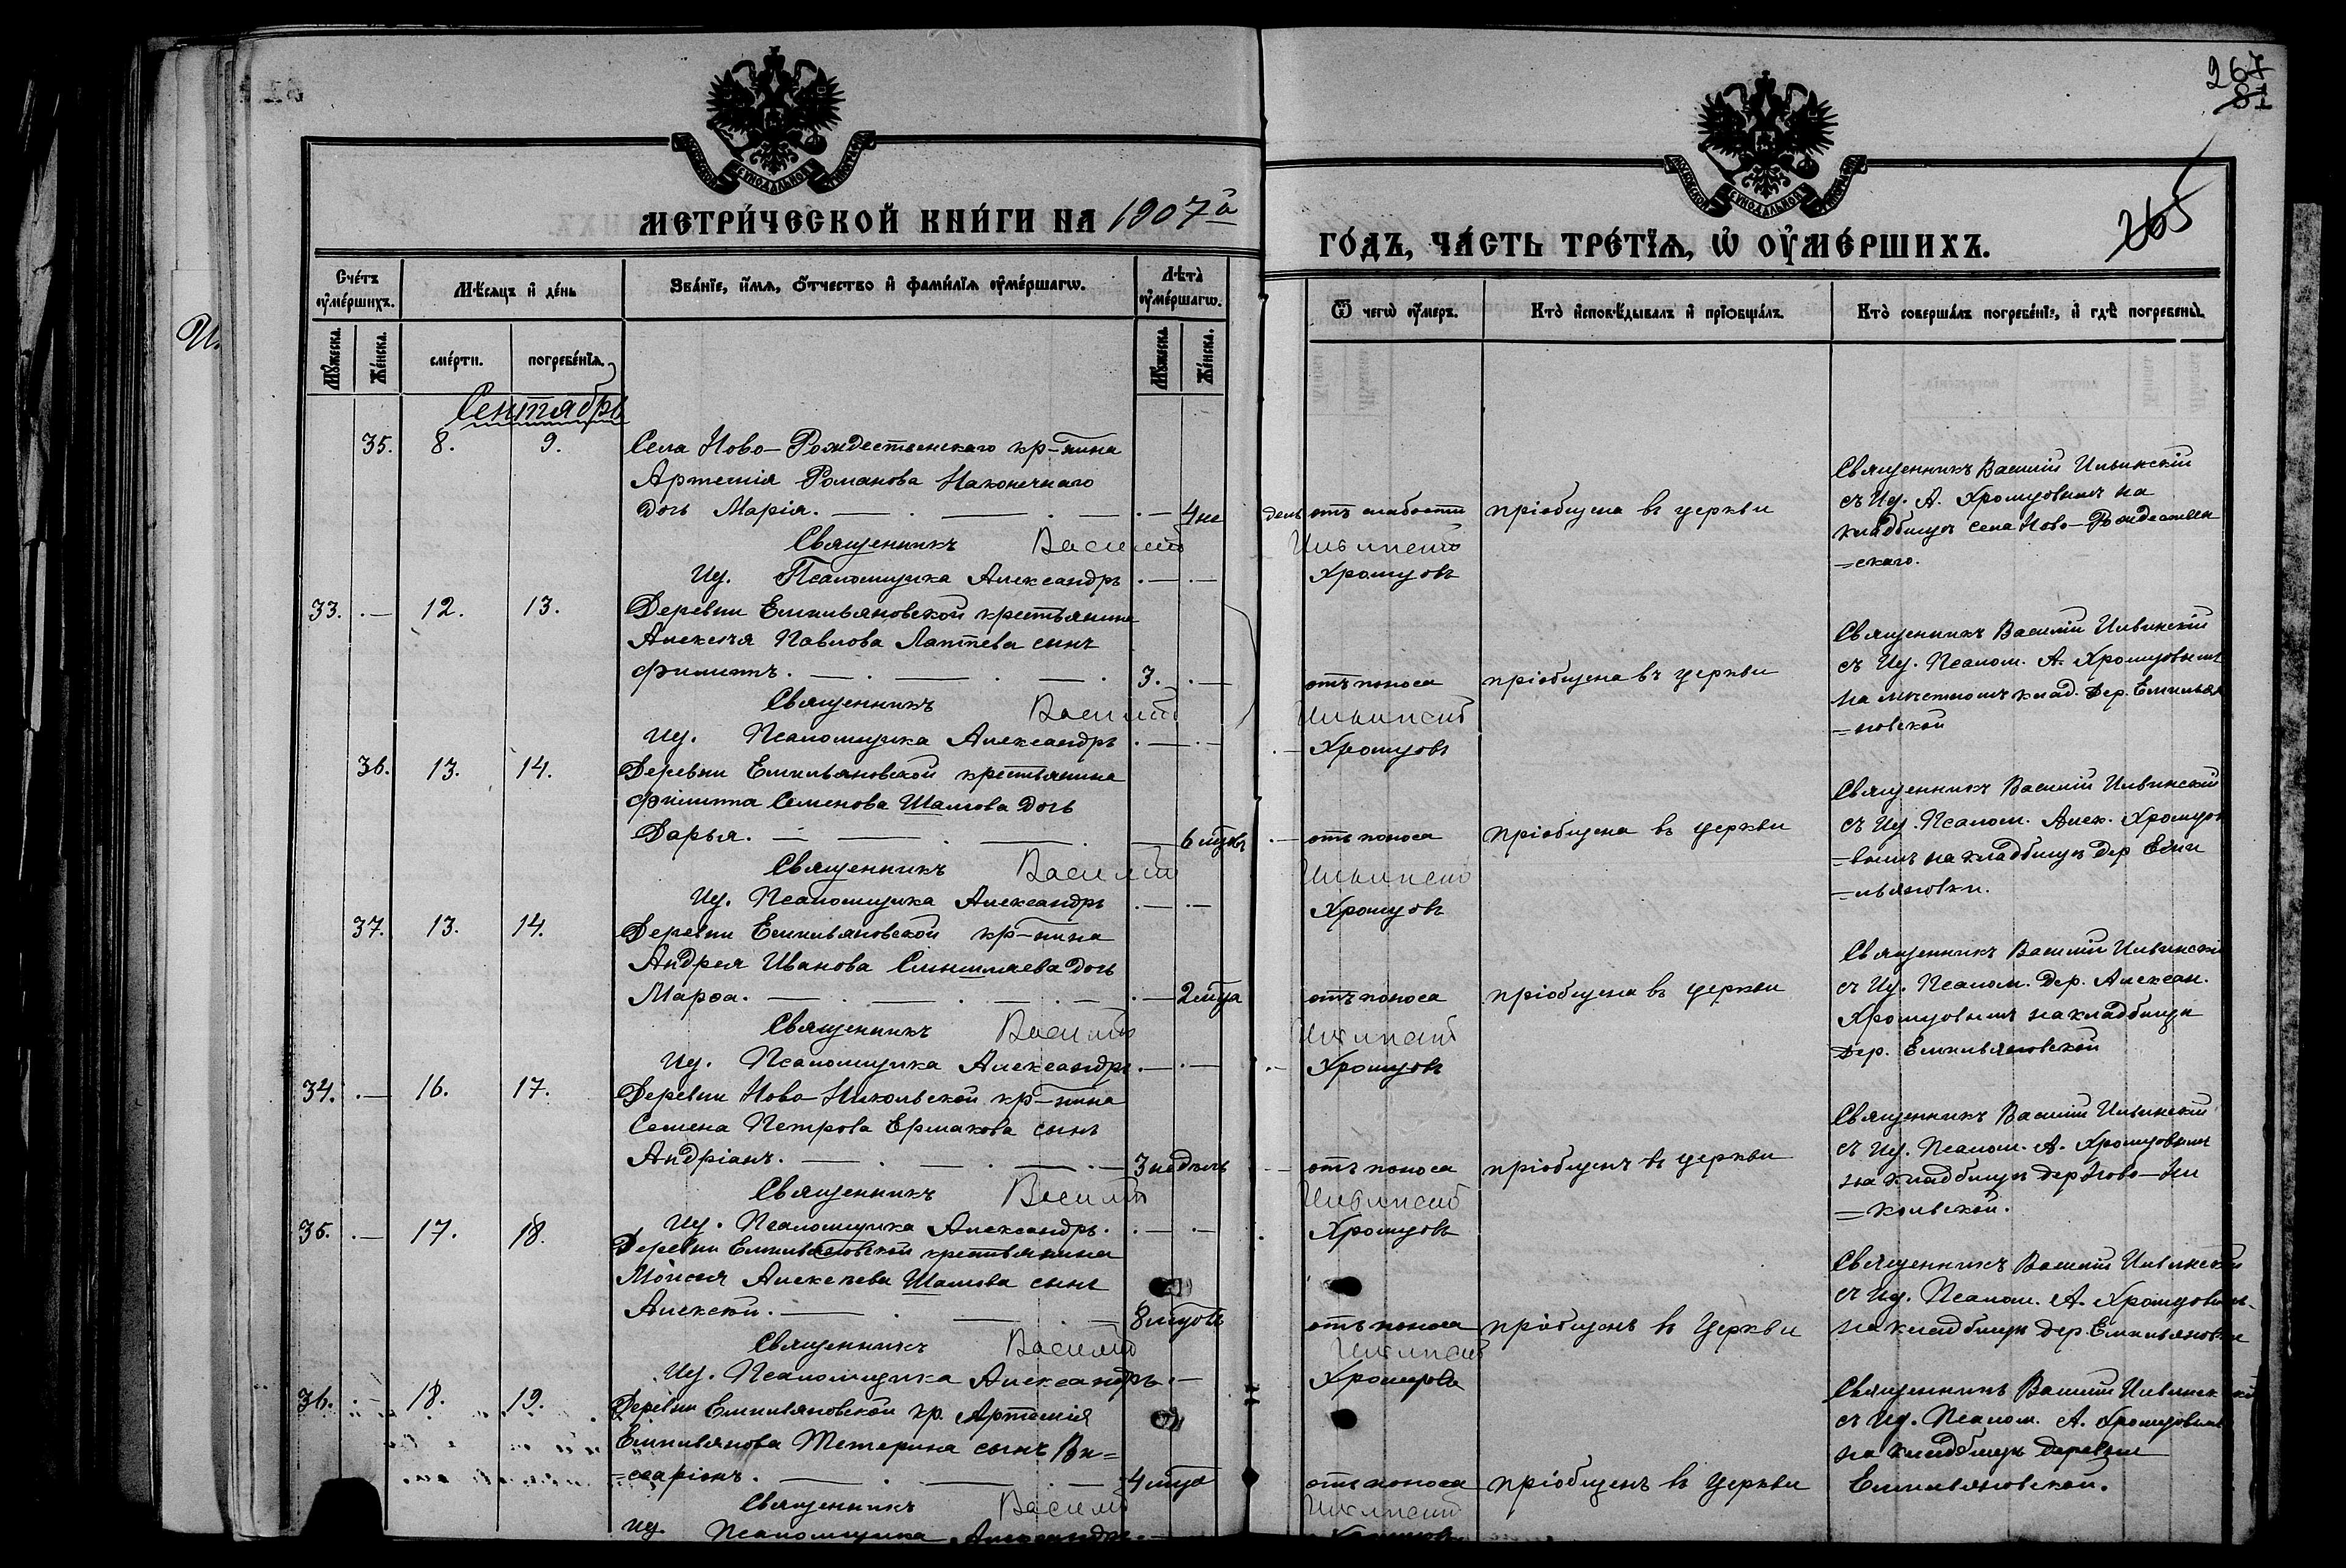 267
81
265
МЕТРИ́ЧЕСКОЙ КНИ́ГИ НА 1907й
ГО́ДЪ, ЧА́СТЬ ТРЕ́ТЇѦ, Ѡ҆ ОУ҆МЕ́РШИХЪ.
Сче́тъ оу҆ме́ршихъ.
Мѣ́сѧцъ и҆ де́нь
Зва́нїе, и҆́мѧ, ѻ҆́тчество и҆ фами́лїѧ оу҆ме́ршагѡ.
Лѣ́та оу҆ме́ршагѡ.
Ѿ чегѡ̀ оу҆́меръ.
Кто̀ и҆сповѣ́дывалъ и҆ прїѻбща́лъ.
Кто̀ соверша́лъ погребе́нїе, и҆ гдѣ̀ погребены̀.
Мꙋ́жеска. Же́нска. сме́рти. погребе́нїѧ. Мꙋ́жеска. Же́нска.
Сентябрь
35. 8. 9. Села Ново-Рождественскаго кр-нина
Артемія Романова Наконечнаго
дочь Марія. 4 не дель отъ слабости пріобщена въ церкви
Священникъ Василій Ильинскій
съ И҃д. А. Хромцовымъ на
кладбищѣ села Ново-Рождествен
=скаго.
Священникъ Василій Ильинскій
Ид. Псаломщика Александръ Хромцовъ
33. 12. 13. Деревни Емильяновской крестьянина
Алексѣя Павлова Лаптева сынъ
Филиппъ. 3. отъ поноса пріобщена въ церкви
Священникъ Василій Ильинскій
съ Ид. Псалом. А. Хромцовымъ
на мѣстномъ клад. дер. Емилья
=новской
Священникъ Василій Ильинскій
Ид. Псаломщика Александръ Хромцовъ
36. 13. 14. Деревни Емильяновской крестьянина
Филиппа Семенова Шамова дочь
Дарья. 6 мцовъ отъ поноса пріобщена въ церкви
Священникъ Василій Ильинскій
съ Ид. Псалом. Алек. Хромцов
=вымъ на кладбищѣ дер Еми
=льяновки.
Священникъ Василій Ильинскій
Ид. Псаломщика Александръ Хромцовъ
37. 13. 14. Деревни Емильяновской кр-нина
Андрея Иванова дочь
Марѳа. 2 мца отъ поноса пріобщена въ церкви
Священникъ Василій Ильинскій
съ Ид. Псалом. Дер. Алексан.
Хромцовымъ на кладбищѣ
дер. Емильяновской
Священникъ Василій Ильинскій
Ид. Псаломщика Александръ Хромцовъ
34. 16. 17. Деревни Ново-Никольской кр-нина
Семена Петрова Ермакова сынъ
Андріанъ. 3 недѣль отъ поноса пріобщенъ въ церкви
Священникъ Василій Ильинскій
съ Ид. Псалом. А. Хромцовымъ
на кладбищѣ дер Ново-Ни
=кольской.
Священникъ Василій Ильинскій
Ид. Псаломщика Александръ. Хромцовъ
35. 17. 18. Деревни Емильяновской крестьянина
Моисея Алексѣева Шамова сынъ
Алексѣй. 8 мцовъ отъ поноса пріобщенъ въ Церкви
Священникъ Василій Ильинскій
съ Ид. Псалом. А. Хромцовымъ
на кладбищѣ дер. Емильяновке
Священникъ Василій Ильинскій
Ид. Псаломщика Александръ Хромцовъ
36. 18. 19. Деревни Емильяновской кр. Артемія
Емильянова Тетерина сынъ Ви=
=саріонъ. 4 мца отъ поноса пріобщенъ въ Церкви
Священникъ Василій Ильинскій
съ Ид. Псалом. А. Хромцовымъ
на кладбищѣ деревни
Емильяновской.
Священникъ Василій Ильинскій
Ид. Псаломщика Александръ Хромцовъ